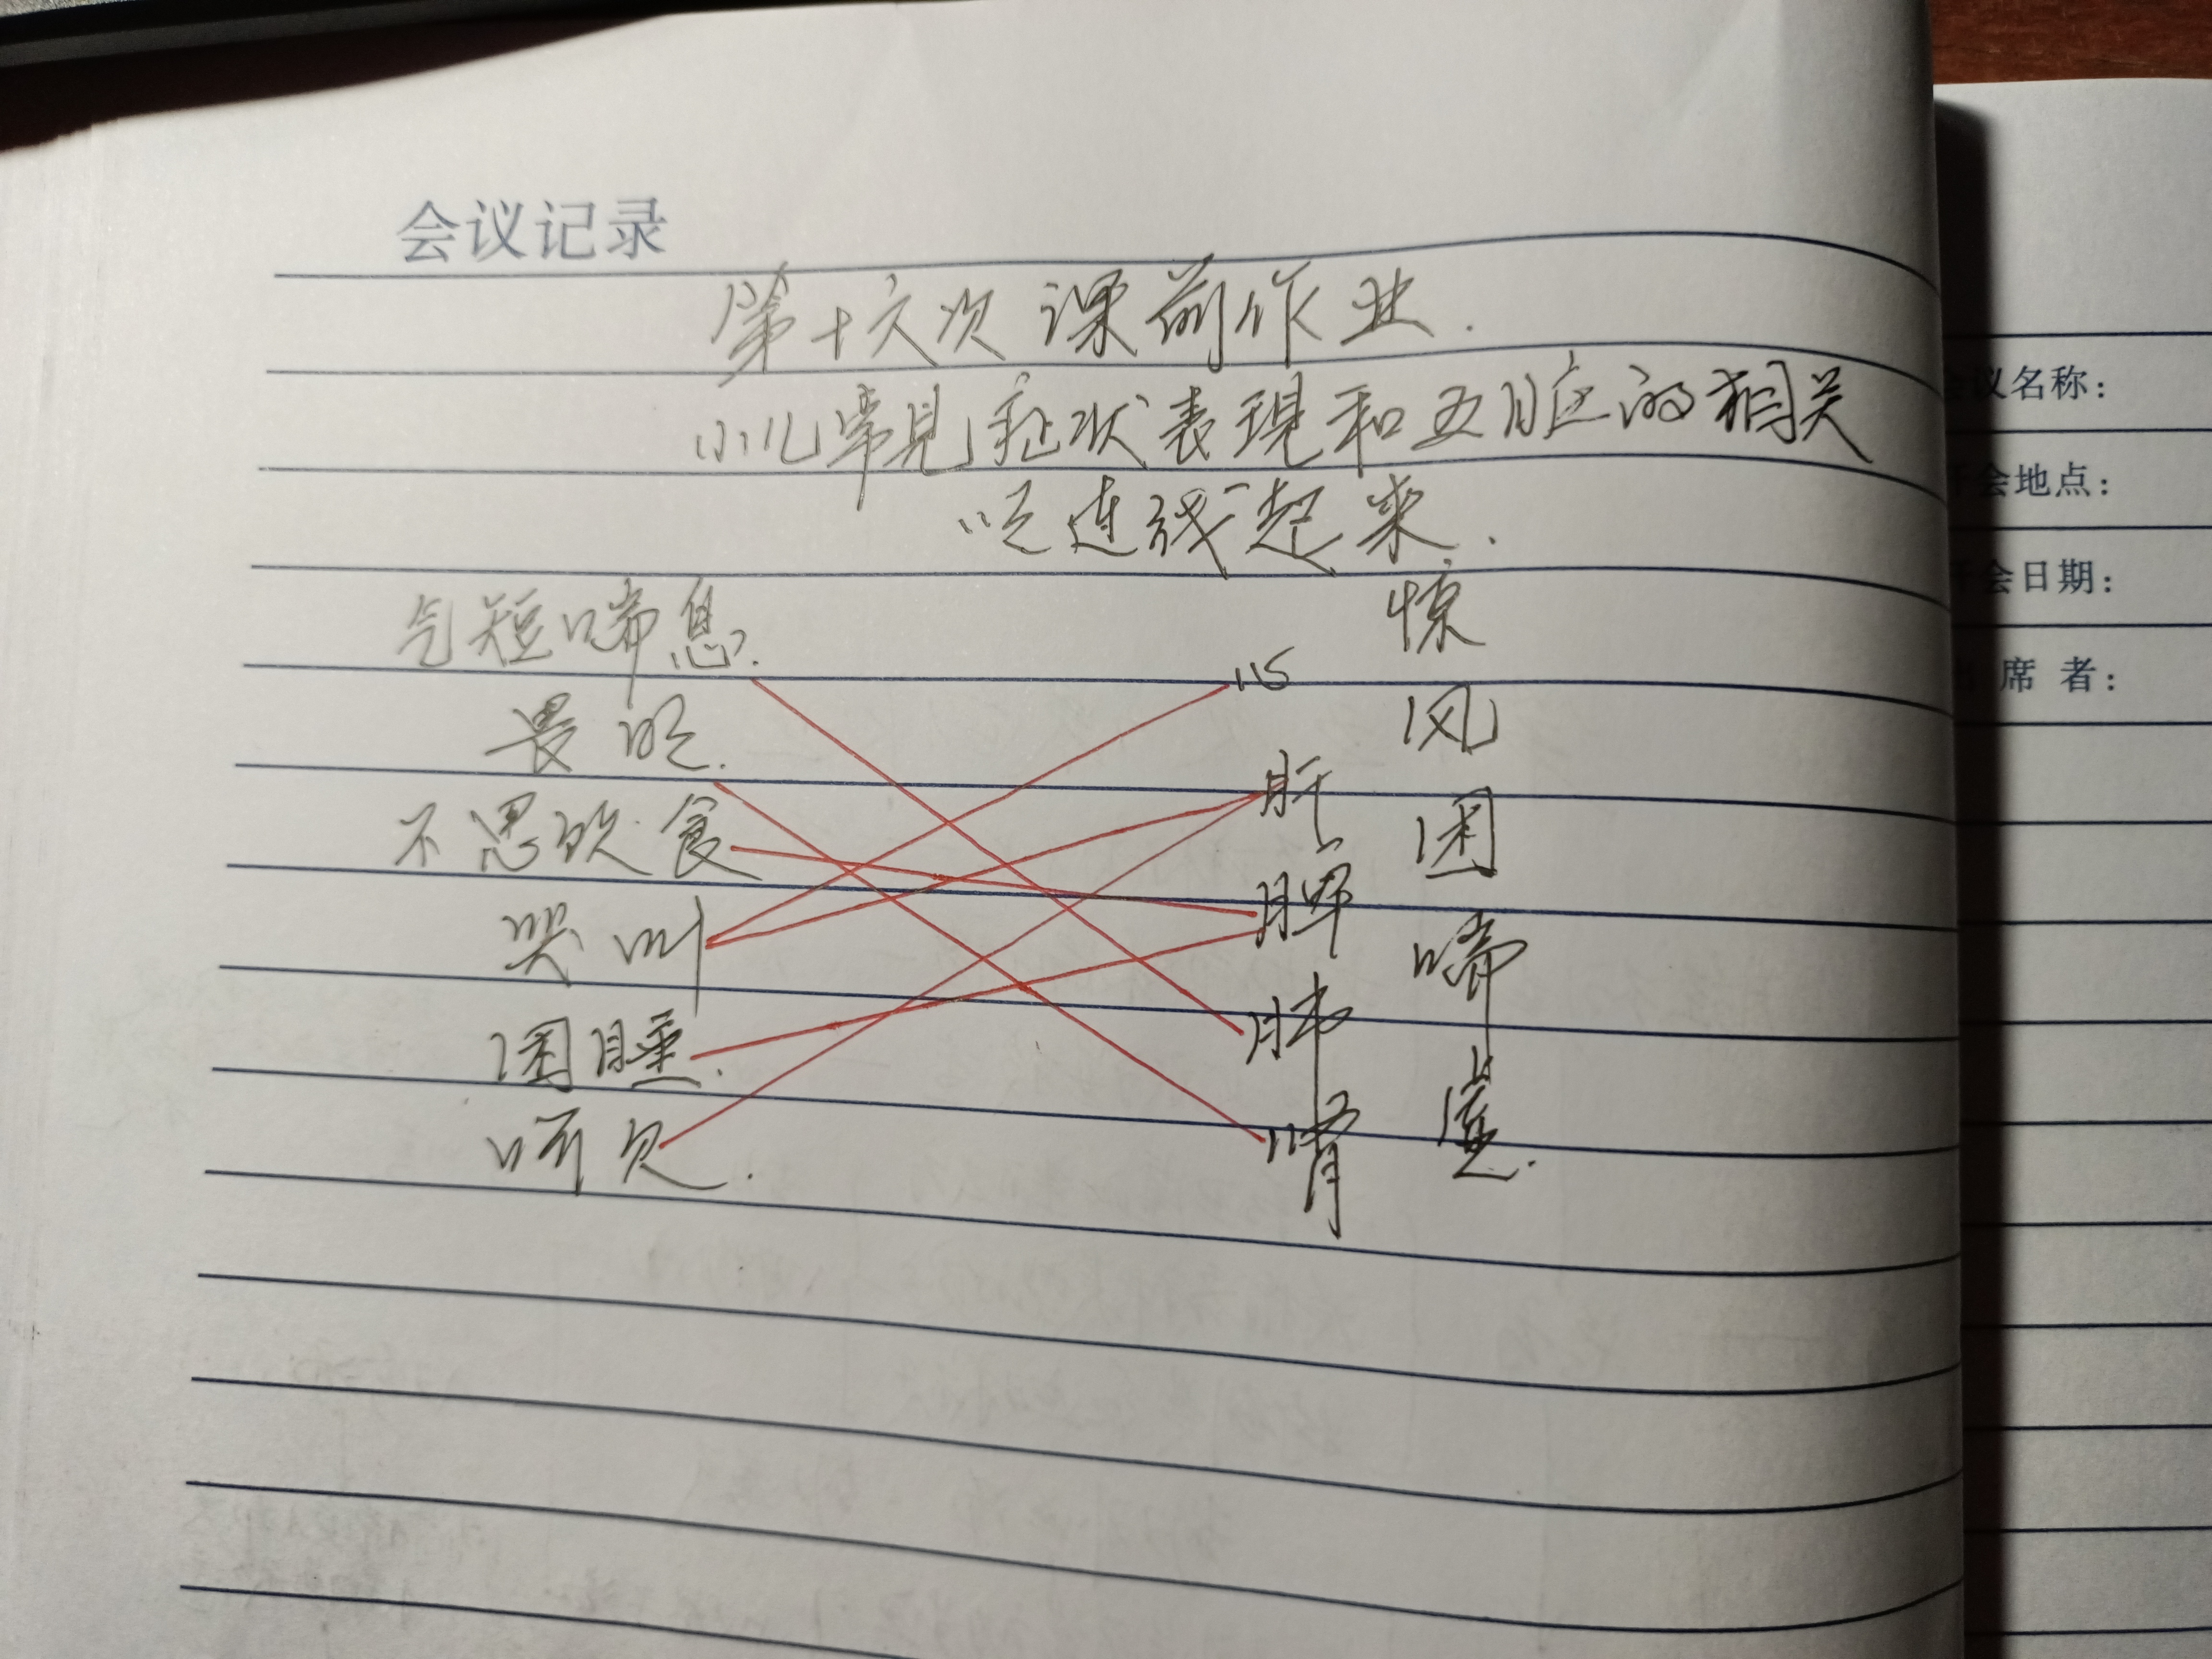 会议记录
第十六次课前作业.
小儿常见症状表现和五脏的相关
性连线一起来.
气短喘息.
畏明.
不思饮食
哭叫
困睡.
呵欠.
心
肝
脾
肺
肾
惊
风
困
喘
虚.
议名称：
会地点：
会日期：
席 者：